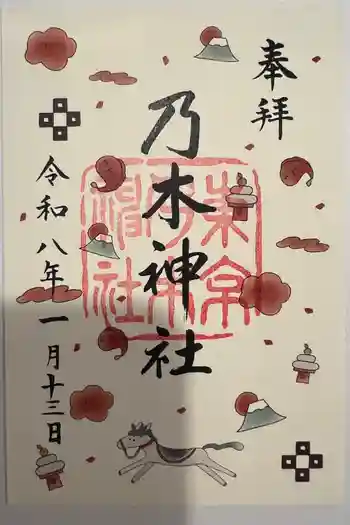 奉拝
乃木神社
令和八年一月十三日
東京乃木神社